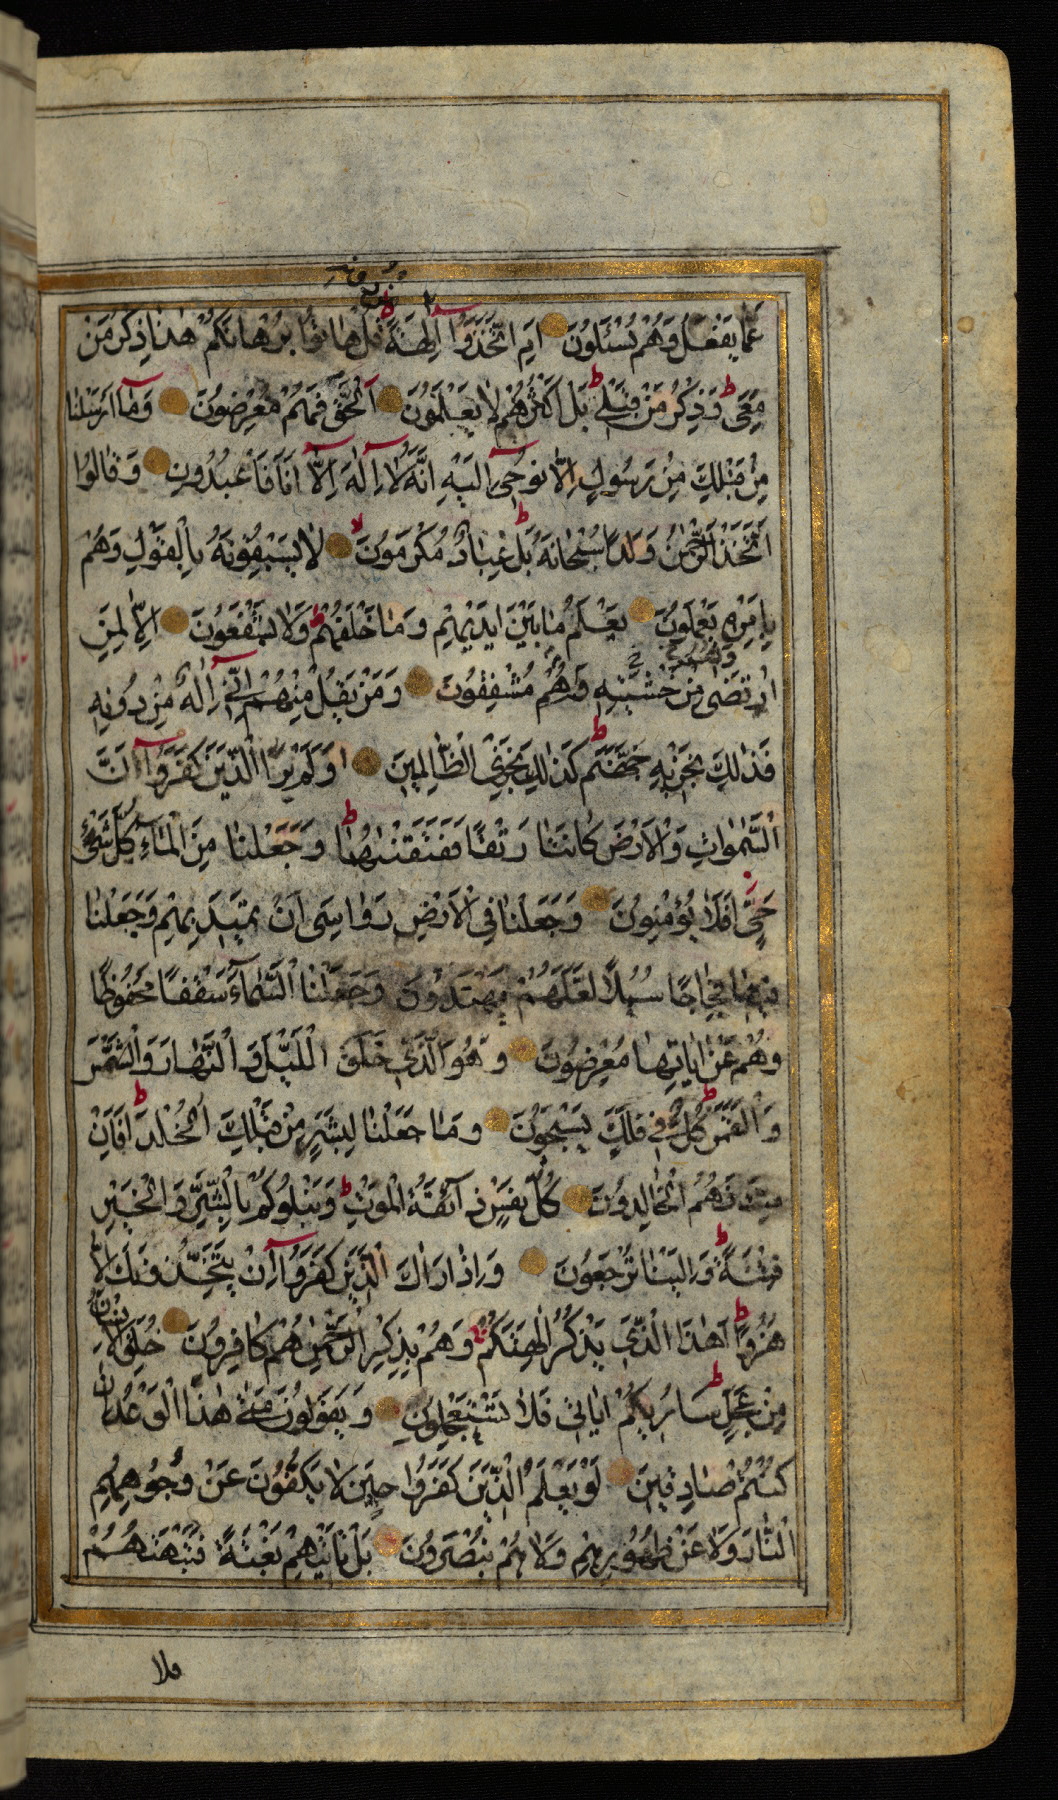 عَمَّا يَفْعَلُ وَهُمْ يُسْئَلُونَ اَمِ اتَّخَذُوا مِنْ دُونِهِ اٰلِهَةً قُلْ هَاتُوا بُرْهَانَكُمْ هٰذَا ذِكْرُ مَنْ
مَعِيَ وَذِكْرُ مَنْ قَبْلِي بَلْ اَكْثَرُهُمْ لَا يَعْلَمُونَ اَلْحَقَّ فَهُمْ مُعْرِضُونَ وَمَا اَرْسَلْنَا
مِنْ قَبْلِكَ مِنْ رَسُولٍ اِلَّا نُوحِي اِلَيْهِ اَنَّهُ لَا اِلٰهَ اِلَّا اَنَا فَاعْبُدُونِ وَقَالُوا
اتَّخَذَ الرَّحْمٰنُ وَلَدًا سُبْحَانَهُ بَلْ عِبَادٌ مُكْرَمُونَ لَا يَسْبِقُونَهُ بِالْقَوْلِ وَهُمْ
بِاَمْرِهِ يَعْمَلُونَ يَعْلَمُ مَا بَيْنَ اَيْدِيهِمْ وَمَا خَلْفَهُمْ وَلَا يَشْفَعُونَ اِلَّا لِمَنِ
ارْتَضَى مِنْ خَشْيَتِهِ وَهُمْ مُشْفِقُونَ وَمَنْ يَقُلْ مِنْهُمْ اِنِّي اِلٰهٌ مِنْ دُونِهِ
فَذٰلِكَ نَجْزِيهِ جَهَنَّمَ كَذٰلِكَ نَجْزِي الظَّالِمِينَ اَوَلَمْ يَرَ الَّذِينَ كَفَرُوا اَنَّ
السَّمٰوَاتِ وَالْاَرْضَ كَانَتَا رَتْقًا فَفَتَقْنَاهُمَا وَجَعَلْنَا مِنَ الْمَاءِ كُلَّ شَيْءٍ
حَيٍّ اَفَلَا يُؤْمِنُونَ وَجَعَلْنَا فِي الْاَرْضِ رَوَاسِيَ اَنْ تَمِيدَ بِهِمْ وَجَعَلْنَا
فِيهَا فِجَاجًا سُبُلًا لَعَلَّهُمْ يَهْتَدُونَ وَجَعَلْنَا السَّمَاءَ سَقْفًا مَحْفُوظًا
وَهُمْ عَنْ اٰيَاتِهَا مُعْرِضُونَ وَهُوَ الَّذِي خَلَقَ اللَّيْلَ وَالنَّهَارَ وَالشَّمْسَ
وَالْقَمَرَ كُلٌّ فِي فَلَكٍ يَسْبَحُونَ وَمَا جَعَلْنَا لِبَشَرٍ مِنْ قَبْلِكَ الْخُلْدَ اَفَاِنْ
مِتَّ فَهُمُ الْخَالِدُونَ كُلُّ نَفْسٍ ذَائِقَةُ الْمَوْتِ وَنَبْلُوكُمْ بِالشَّرِّ وَالْخَيْرِ
فِتْنَةً وَاِلَيْنَا تُرْجَعُونَ وَاِذَا رَاٰكَ الَّذِينَ كَفَرُوا اِنْ يَتَّخِذُونَكَ اِلَّا
هُزُوًا اَهٰذَا الَّذِي يَذْكُرُ اٰلِهَتَكُمْ وَهُمْ بِذِكْرِ الرَّحْمٰنِ هُمْ كَافِرُونَ خُلِقَ الْاِنْسَانُ
مِنْ عَجَلٍ سَاُرِيكُمْ اٰيَاتِي فَلَا تَسْتَعْجِلُونِ وَيَقُولُونَ مَتٰى هٰذَا الْوَعْدُ اِنْ
كُنْتُمْ صَادِقِينَ لَوْ يَعْلَمُ الَّذِينَ كَفَرُوا حِينَ لَا يَكُفُّونَ عَنْ وُجُوهِهِمُ
النَّارَ وَلَا عَنْ ظُهُورِهِمْ وَلَا هُمْ يُنْصَرُونَ بَلْ تَاْتِيهِمْ بَغْتَةً فَتَبْهَتُهُمْ
فلا